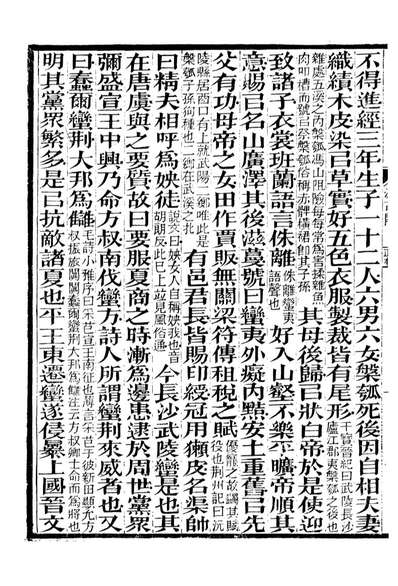 不得進經三年生子一十二人六男六女槃瓠死後因自相夫妻
織績木皮染㠯草實好五色衣服製裁皆有尾形干寶晉紀曰武陵長沙廬江郡夷槃瓠之後也
雜處五溪之內槃瓠馮山阻險每每常爲害糅雜魚肉叩槽而號㠯祭槃瓠俗稱赤髀橫裙卽其子孫其母後歸㠯狀白帝於是使迎
致諸子衣裳班蘭語言侏離侏離蠻夷語聲也好入山壑不樂平曠帝順其
意賜㠯名山廣澤其後滋蔓號曰蠻夷外癡內黠安土重舊㠯先
父有功母帝之女田作賈販無關梁符傳租稅之賦優寵之故蠲其賦役也荆州記曰沅
陵縣居酉口有上就武陽二鄕唯此是槃瓠子孫狗種也二鄕在武溪之北有邑君長皆賜印綬冠用獺皮名渠帥
曰精夫相呼爲姎徒說文曰姎女人自稱姎我也音胡朗反此已上並見風俗通今長沙武陵蠻是也其
在唐虞與之要質故曰要服夏商之時漸爲邊患逮於周世黨眾
彌盛宣王中興乃命方叔南伐蠻方詩人所謂蠻荆來威者也又
曰蠢爾蠻荆大邦爲讎毛詩小雅序曰采芑宣王南征也薄言采芑于彼新田顯允方叔振旅闐闐蠢爾蠻荆大邦爲讎注云方叔卿士命而爲將也
明其黨眾繁多是㠯抗敵諸夏也平王東遷蠻遂侵暴上國晉文